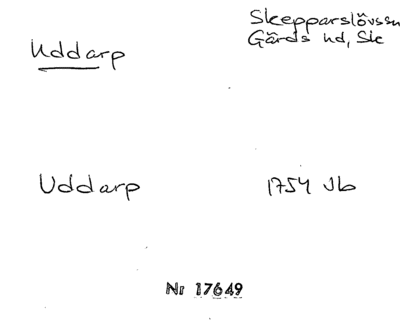 Skepparslövssn
Gärds hd, Sk
Uddarp
Uddarp
1754 Jb
Nr 17649